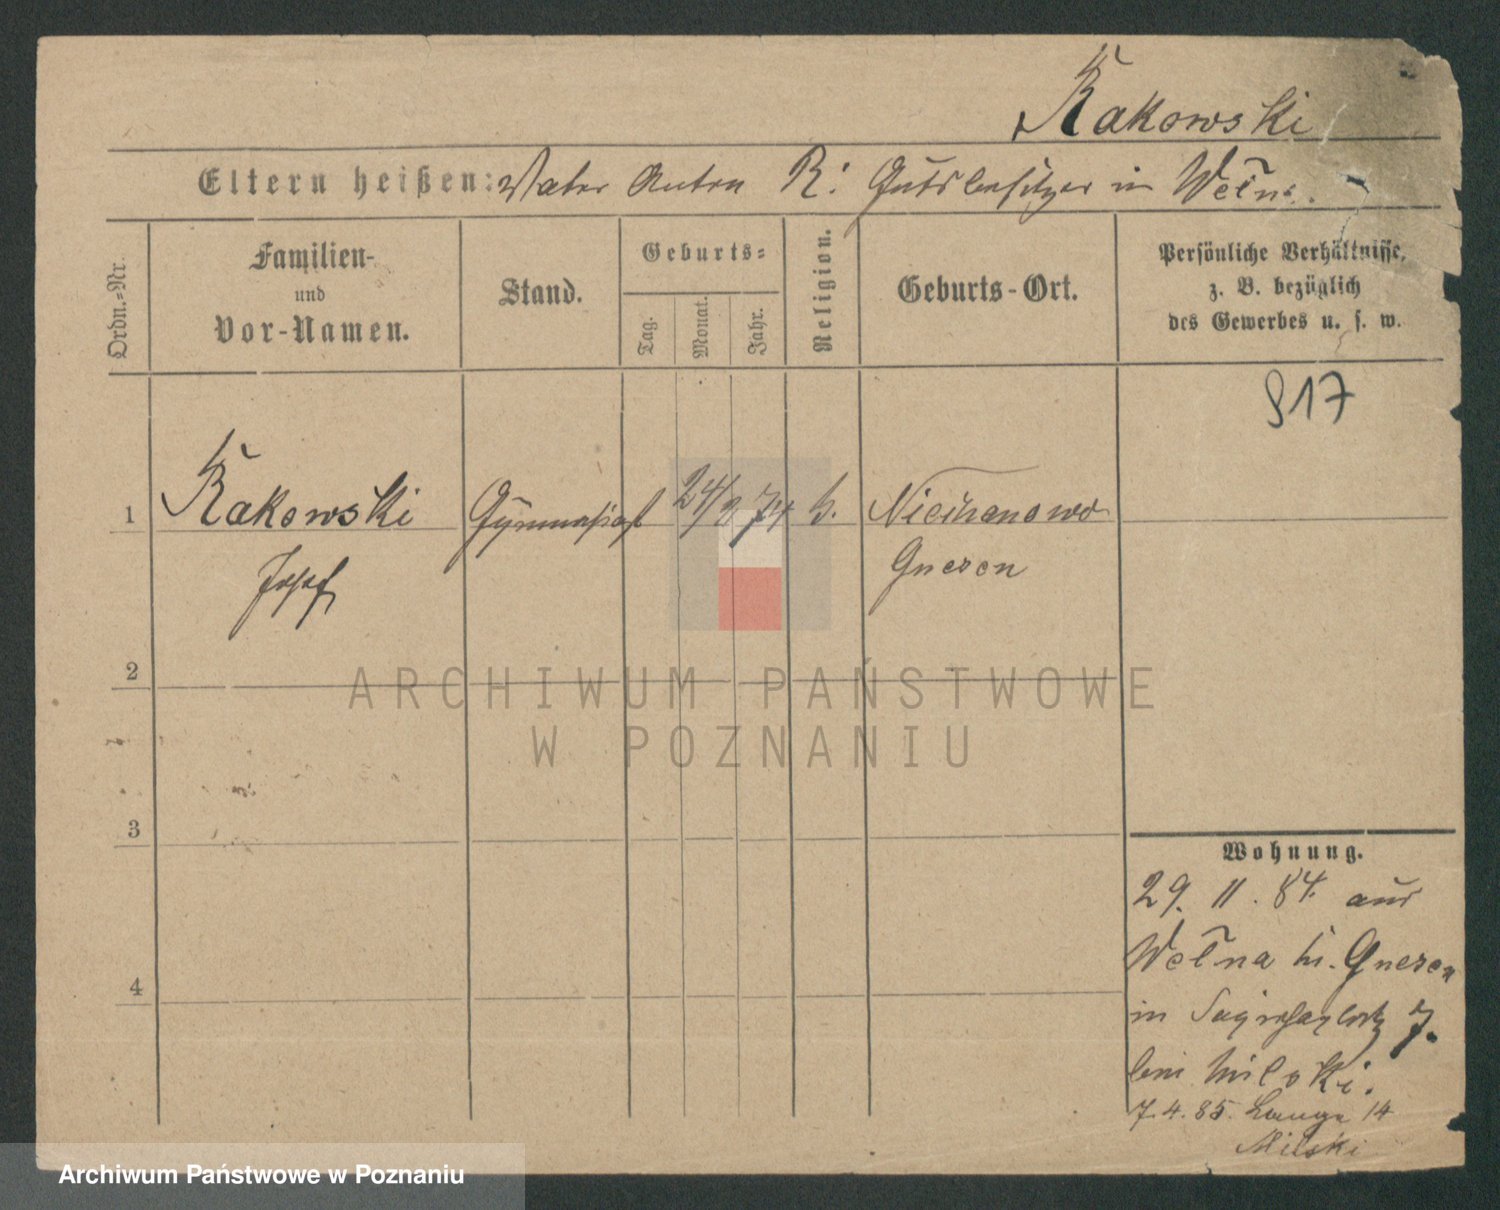 Rakowski
Eltern heißen: Vater Anton R. Gutsbesitzer in Wełna.
Ordn.=Nr.
Familien-
und
Vor-Namen.
Stand.
Geburts=
Tag.
Monat.
Jahr.
Religion.
Geburts-Ort.
Persönliche Verhältnisse,
z. B. bezüglich
des Gewerbes u. s. w.
917
1 Rakowski Gymnasiast 24/2 74 k.
Josef
Gnesen
2
3
4
Wohnung.
29. 11. 84. aus
Wełna bei Gnesen
in 7.
bei Milski.
7.4.85. Lange 14
Milski
ARCHIWUM PAŃSTWOWE
W POZNANIU
Archiwum Państwowe w Poznaniu